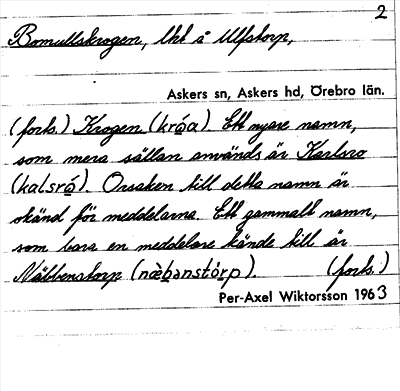 2
Bomullskrogen, lht å Ulfstorp,
Askers sn, Askers hd, Örebro län.
(forts.) Krogen (krǫ́a). Ett nyare namn,
som mera sällan används är Karlsro
(kalsrǫ́). Orsaken till detta namn är
okänd för meddelarna. Ett gammalt namn,
som bara en meddelare kände till är
Näbbenstorp (næ̀bənstórp). (forts.)
Per-Axel Wiktorsson 1963